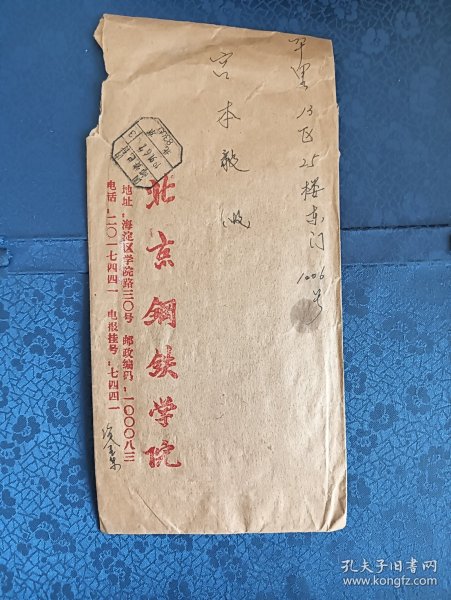 里13区25楼东门1006号
宫本毅收
北京钢铁学院
地址:海淀区学院路三〇号 邮政编码:一〇〇〇八三
电话:二〇一七四四一 电报挂号:七四四一
孔夫子旧书网
www.kongfz.com